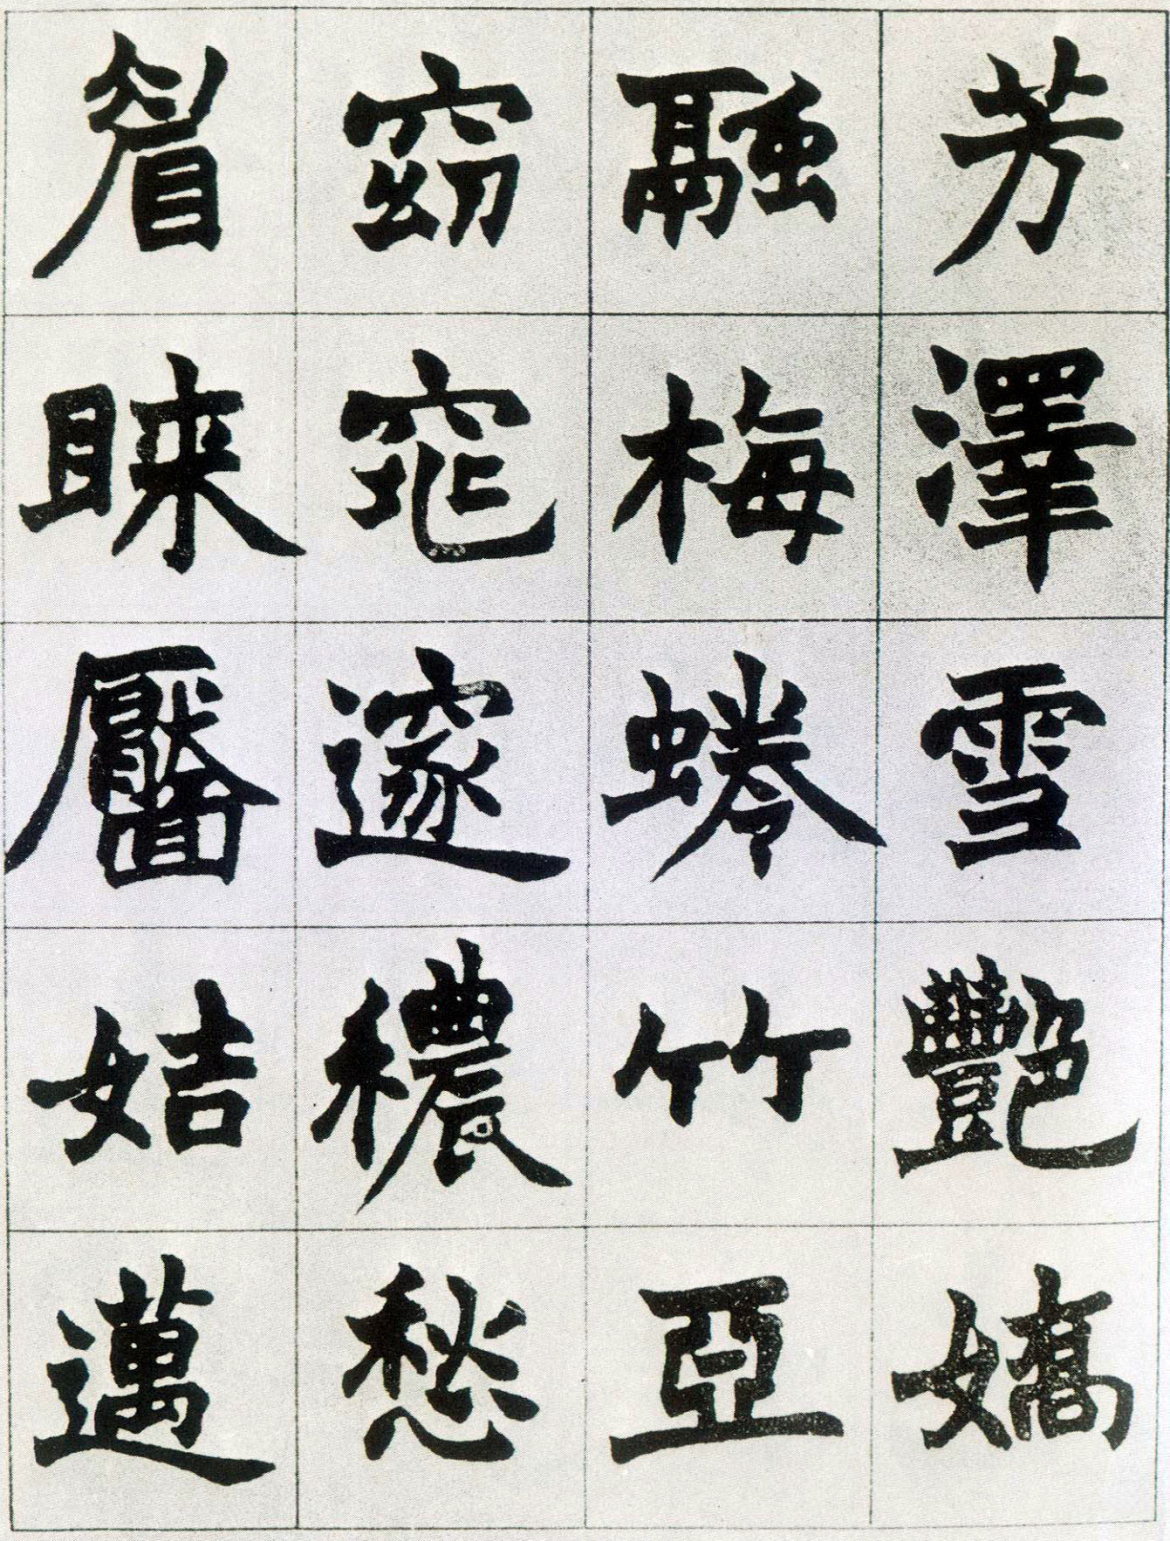 芳澤雪艷嬌
融梅蜷竹亞
窈窕邃穠愁
眉睞靨姞邁